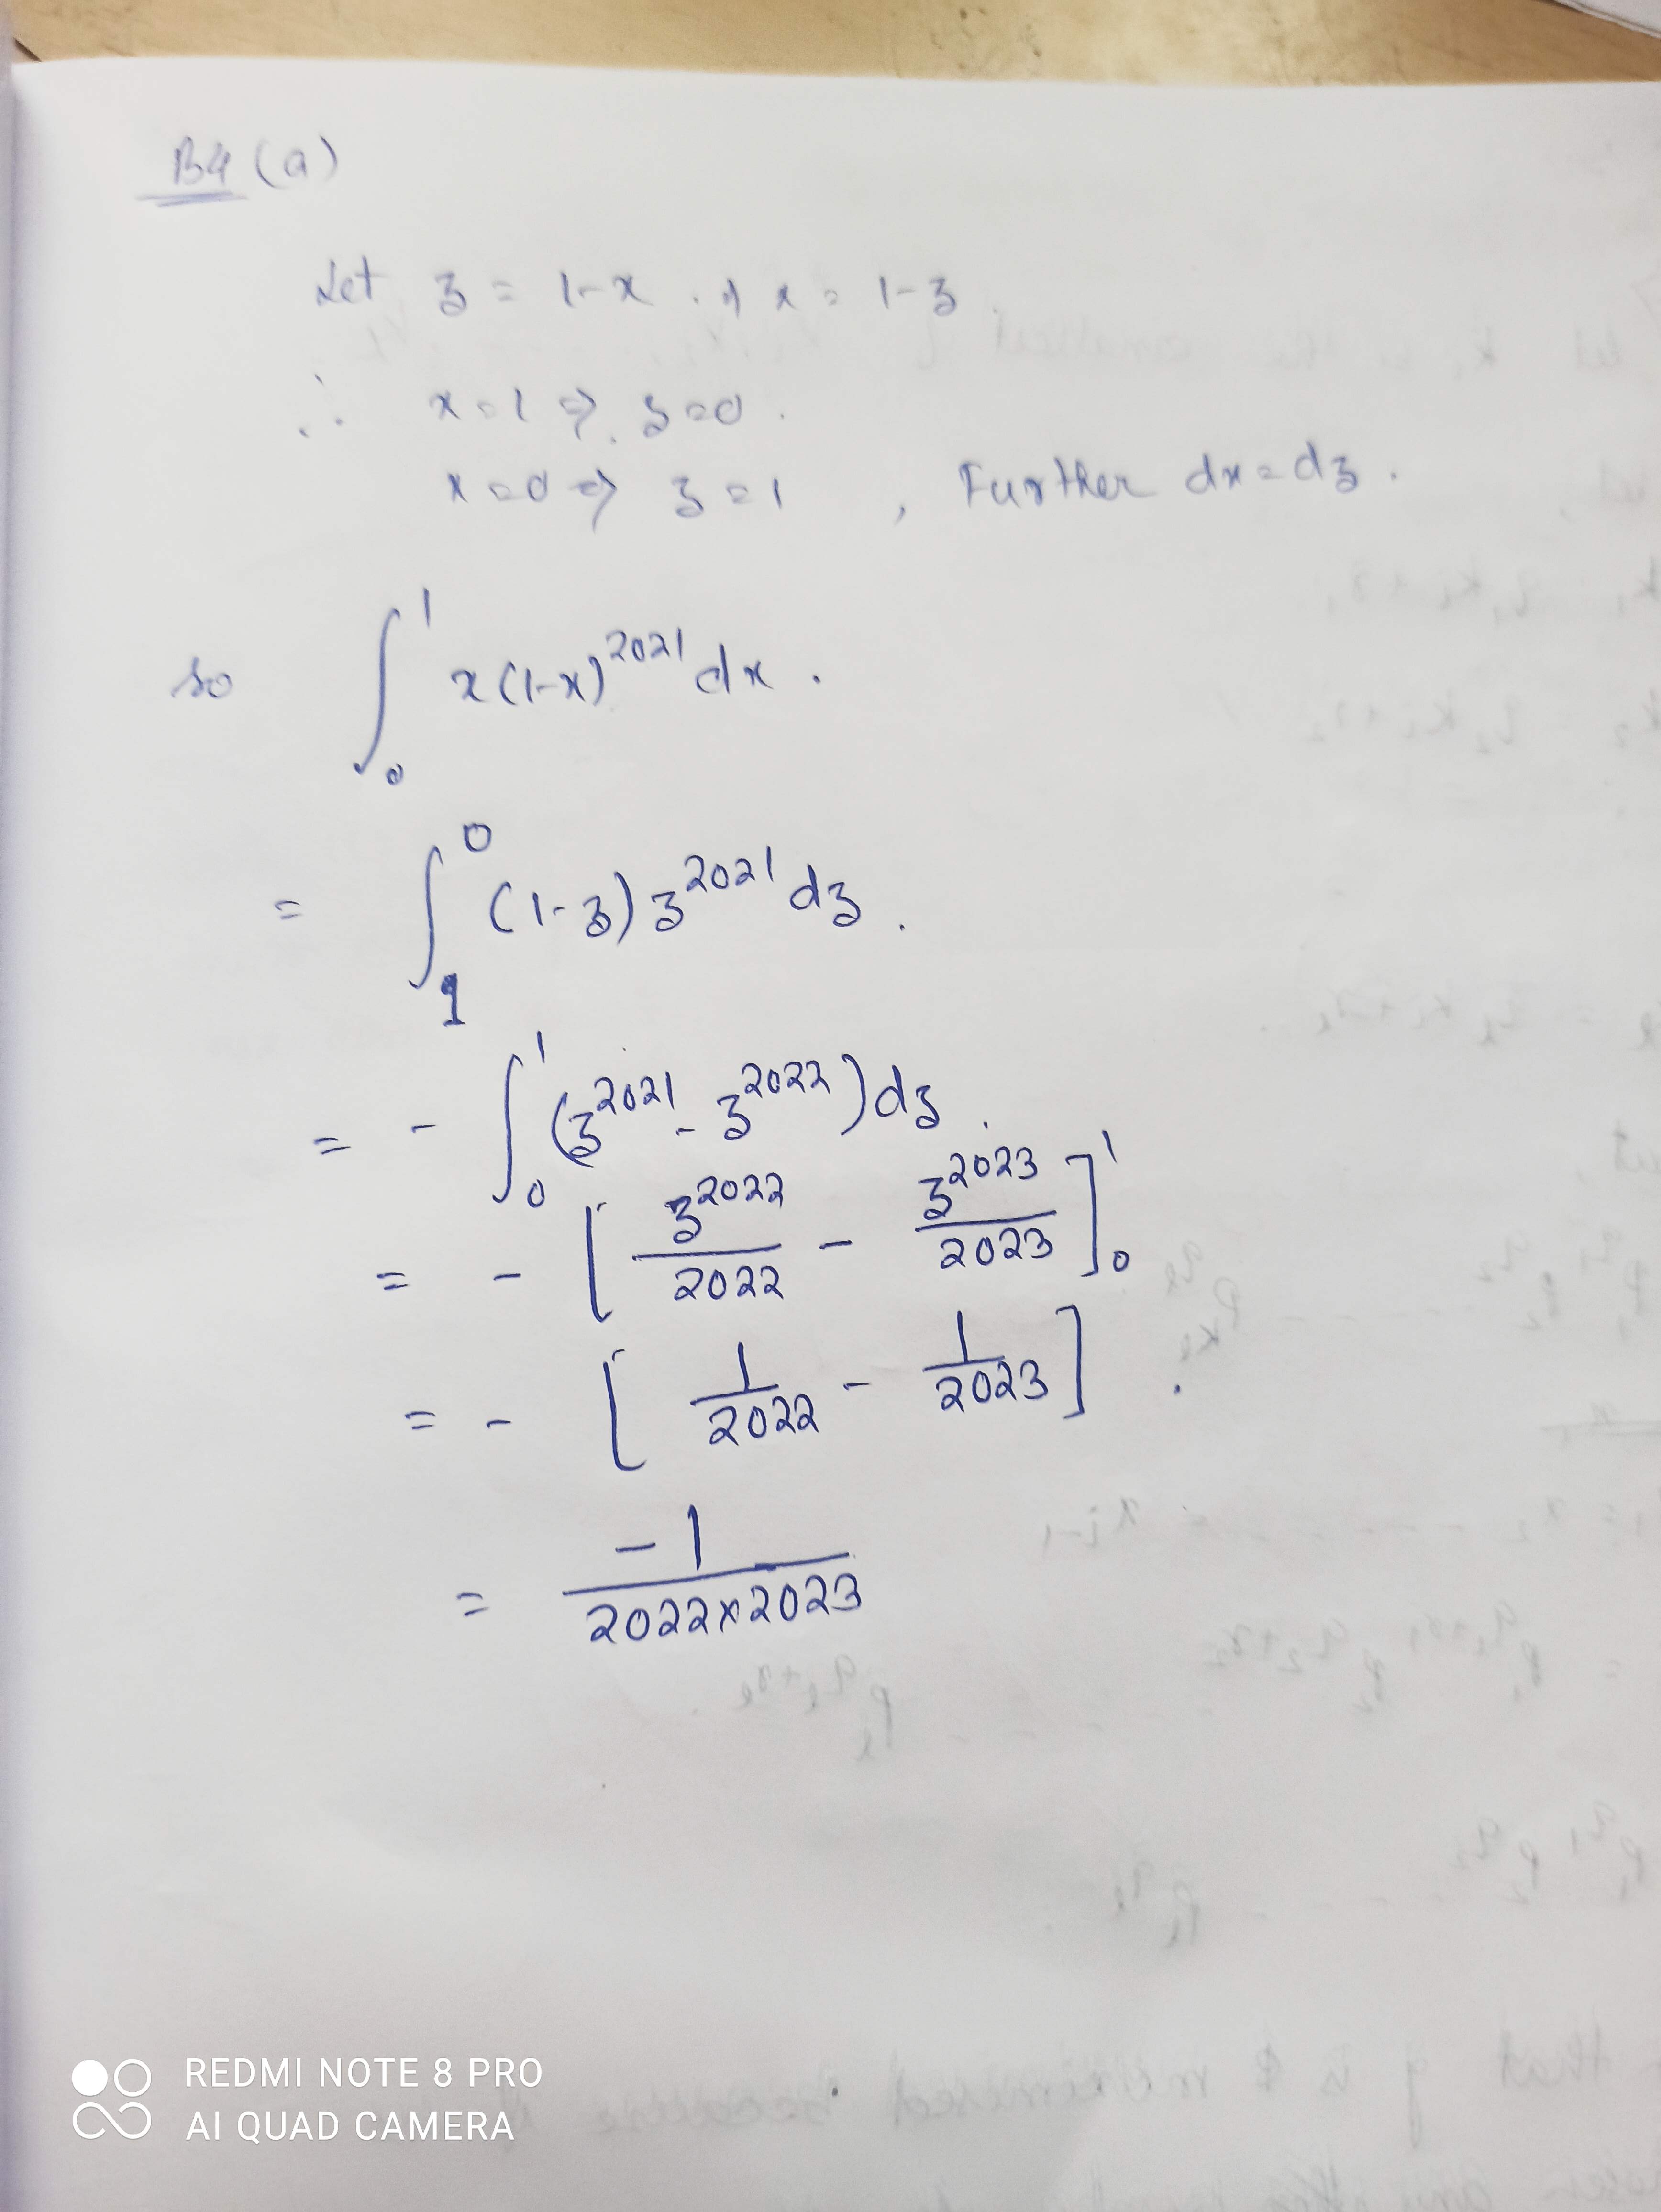 B4 (a)
Let z = 1-x . ⇒ x = 1-z .
∴ x=1 ⇒ z=0 .
x=0 ⇒ z=1 , Further dx=dz .
so ∫₀¹ x(1-x)^2021 dx .
= ∫₁⁰ (1-z) z^2021 dz .
= - ∫₀¹ (z^2021 - z^2022) dz .
= - [ z^2022/2022 - z^2023/2023 ]₀¹
= - [ 1/2022 - 1/2023 ] .
= -1/2022×2023
REDMI NOTE 8 PRO
AI QUAD CAMERA